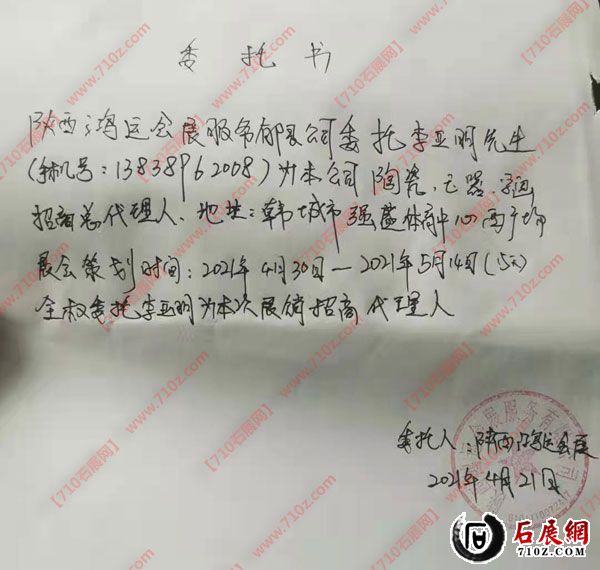 委托书
陕西鸿运会展服务有限公司委托李亚明先生
(手机号:13838962008)为本公司 陶瓷、玉器、字画
招商总代理人、地址:韩城市 体育中心西广场
展会策划时间:2021年4月30日—2021年5月14日(15天)
全权委托李亚明为本次展销招商代理人
委托人:陕西鸿运会展
2021年4月21日
展服务有
【710石展网】www.710z.com
石展網
710Z.COM